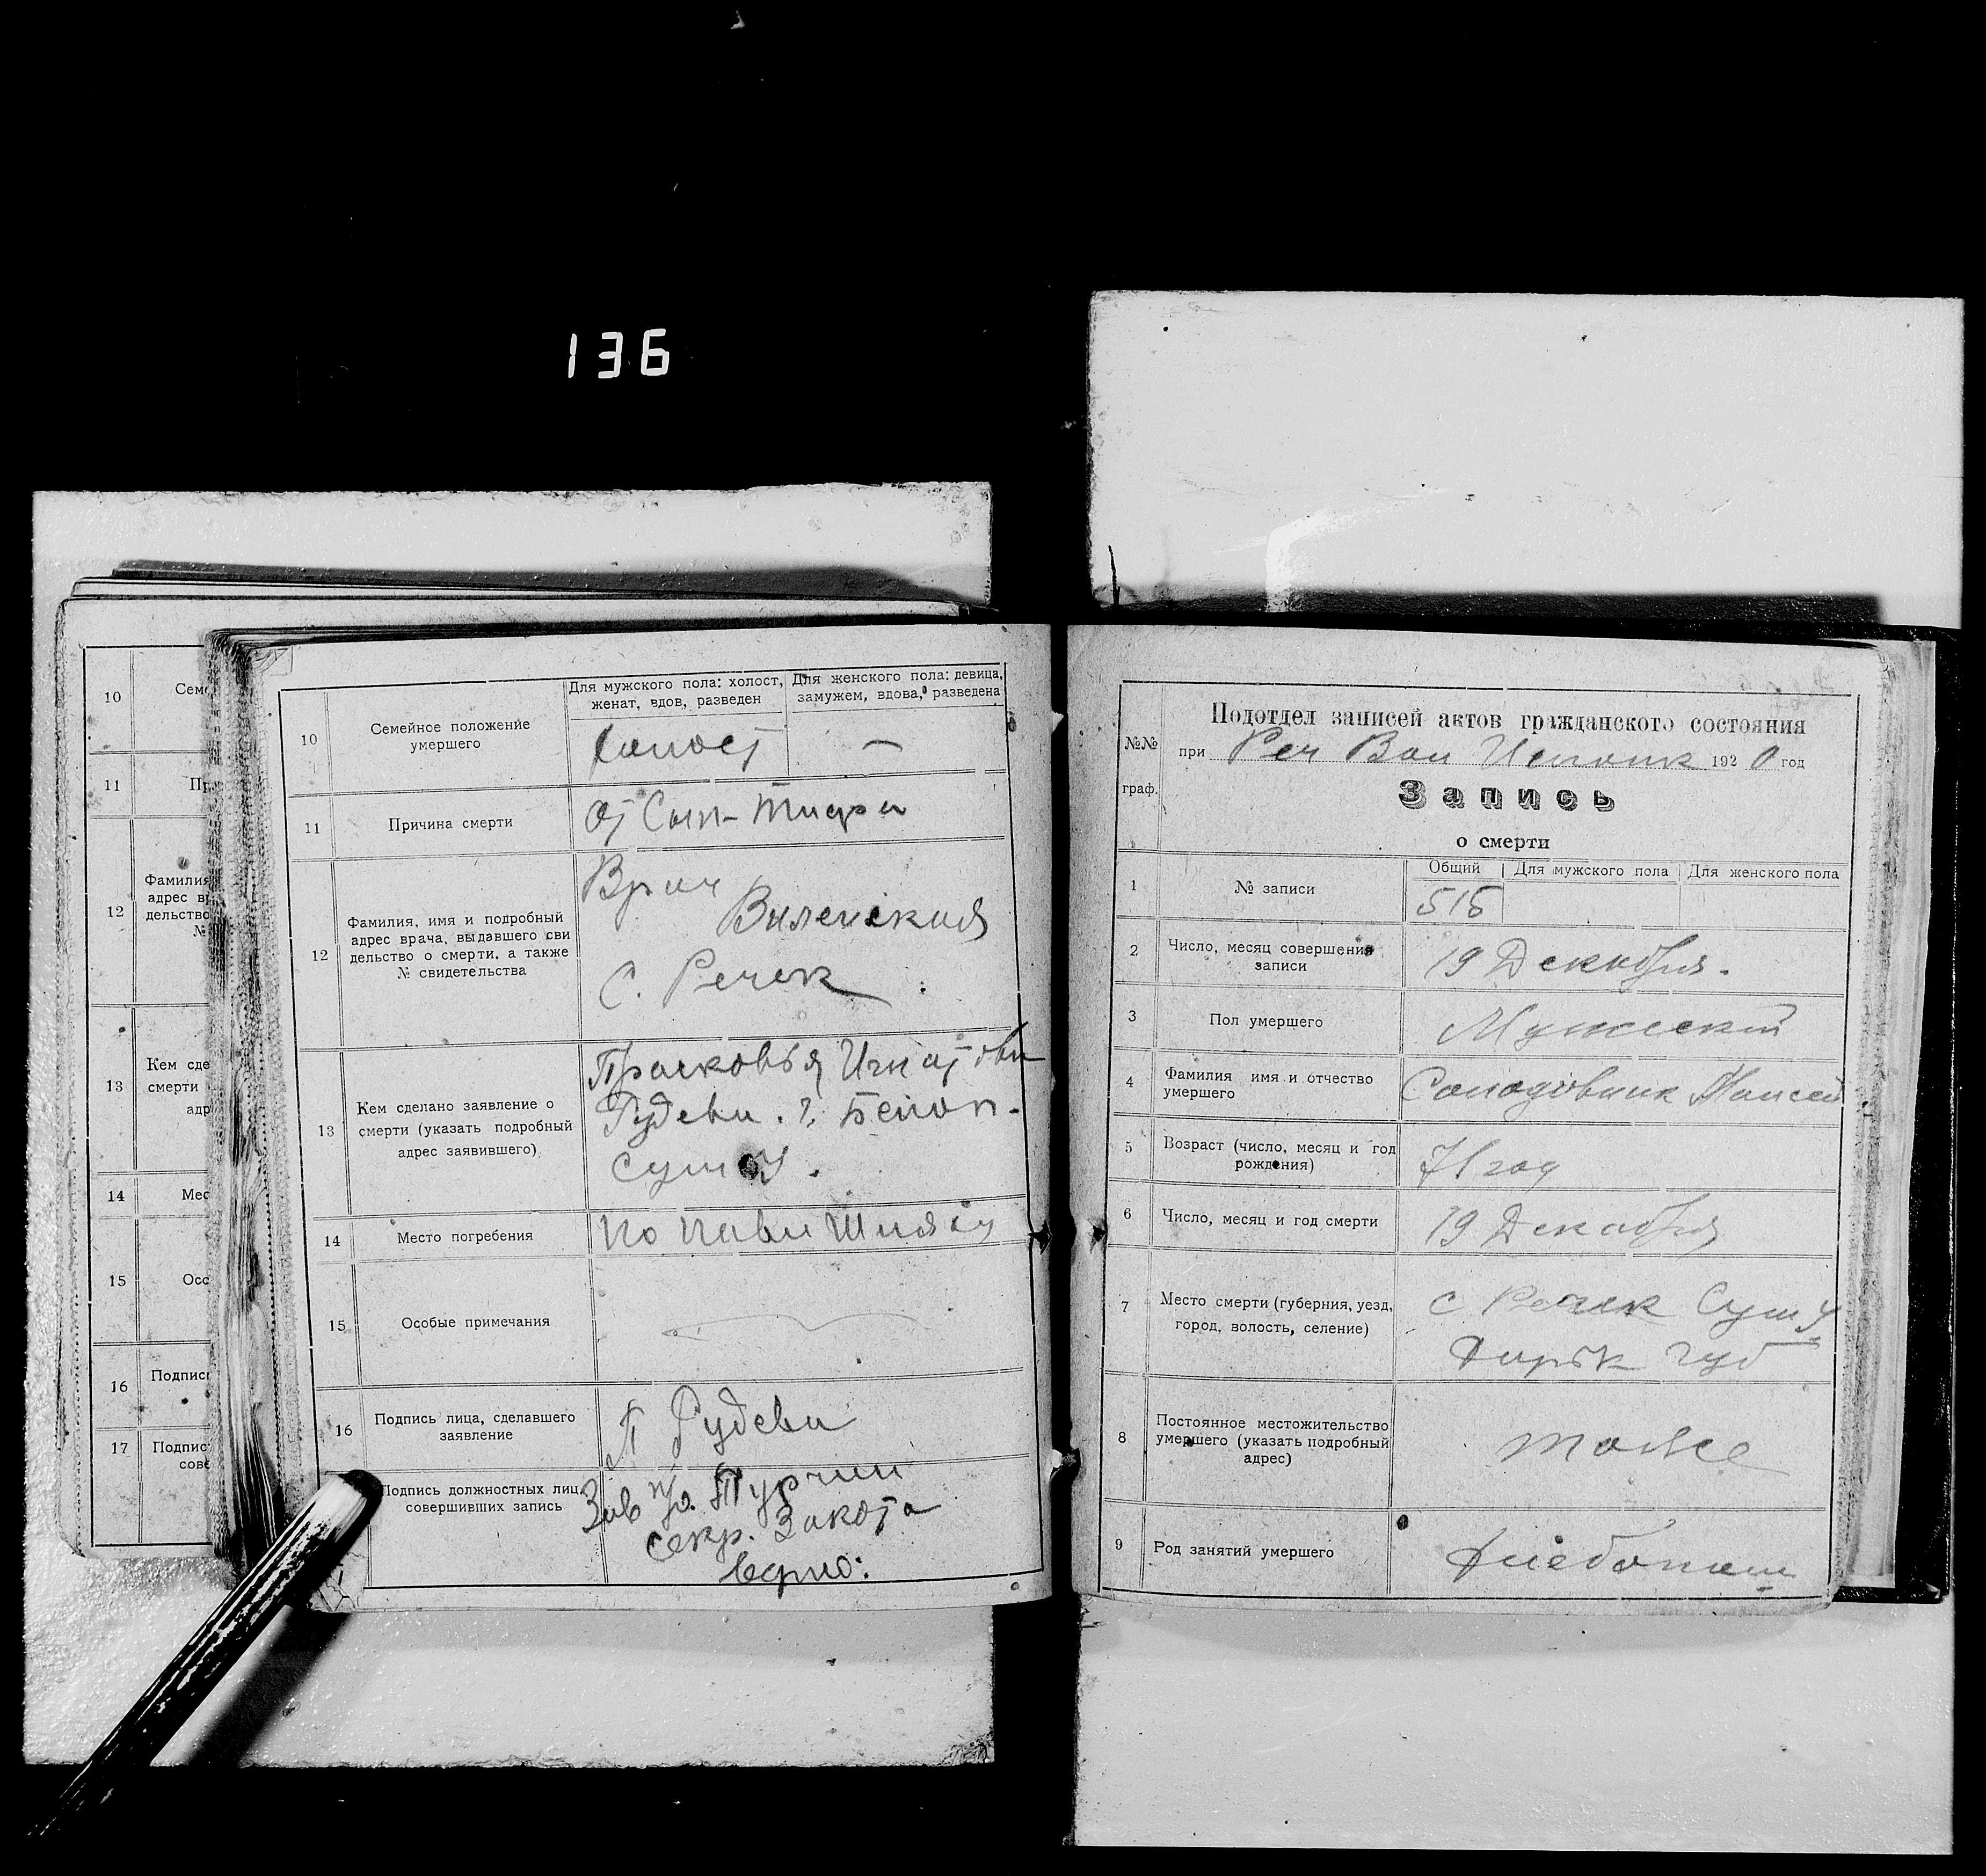 136
10
Сем
11
Пр
12
Фамилия
адрес в
дельство
№
13
Кем сде
смерти
адр
14
Мес
15
Осо
16
Подпис
17
Подпис
сове
10
Семейное положение
умершего
Для мужского пола: холост,
женат, вдов, разведен
Для женского пола: девица,
замужем, вдова, разведена
холост
—
11
Причина смерти
От Сып-Тифа
12
Фамилия, имя и подробный
адрес врача, выдавшего сви
дельство о смерти, а также
№ свидетельства
Врач
Виленская
С. Речек
13
Кем сделано заявление о
смерти (указать подробный
адрес заявившего)
Прасковья Игнатова
Рудева. г. Белоп.
Сум у.
14
Место погребения
15
Особые примечания
16
Подпись лица, сделавшего
заявление
П Рудева
Подпись должностных лиц,
совершивших запись
Зав п/о. Турчин
Секр. Закота
Верно:
№№
граф.
Подотдел записей актов гражданского состояния
при Реч Вол Исполк 1920 год
Запись
о смерти
1
№ записи
Общий
Для мужского пола
Для женского пола
515
2
Число, месяц совершения
записи
19 Декабря.
3
Пол умершего
Мужской
4
Фамилия имя и отчество
умершего
Солодовник Моисей
5
Возраст (число, месяц и год
рождения)
71 год
6
Число, месяц и год смерти
19 Декабря
7
Место смерти (губерния, уезд,
город, волость, селение)
с Речек Сум у
Харьк губ
8
Постоянное местожительство
умершего (указать подробный
адрес)
тоже
9
Род занятий умершего
Хлебопаш